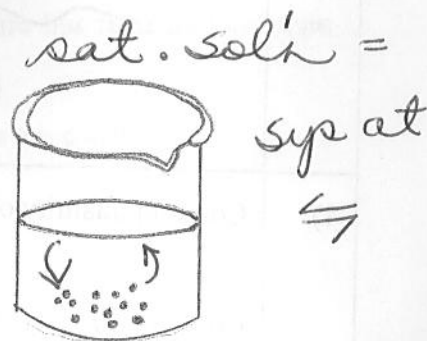 sat. sol'n =
sys at
⇌